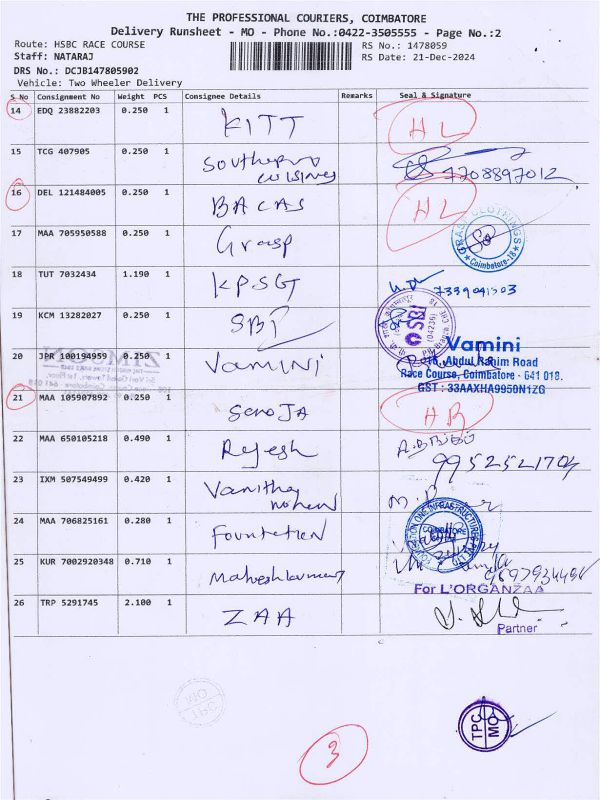 THE PROFESSIONAL COURIERS, COIMBATORE
Delivery Runsheet - MO - Phone No.:0422-3505555 - Page No.:2
Route: HSBC RACE COURSE
RS No.: 1478059
Staff: NATARAJ
RS Date: 21-Dec-2024
DRS No.: DCJB147805902
Vehicle: Two Wheeler Delivery
S No Consignment No Weight PCS Consignee Details Remarks Seal & Signature
14 EDQ 23882203 0.250 1 KITT HL
15 TCG 407905 0.250 1 Southern cuisines 7708897012
16 DEL 121484005 0.250 1 BACAS HL
17 MAA 705950588 0.250 1 Grasp
GRASP CLOTHINGS
Coimbatore-18
18 TUT 7032434 1.190 1 KPSGT
19 KCM 13282027 0.250 1 SBI
20 JPR 100194959 0.250 1 VAMINI
Vamini
Abdul Rahim Road
Race Course, Coimbatore - 641 018.
GST : 33AAXHA9950N1ZG
21 MAA 105907892 0.250 1 HR
22 MAA 650105218 0.490 1 Rajesh
9952521704
23 IXM 507549499 0.420 1 Vanitha mohan
24 MAA 706825161 0.280 1 Foundation
COIMBATORE
25 KUR 7002920348 0.710 1 Maheshkumar
26 TRP 5291745 2.100 1 ZAA
For L'ORGANZAA
Partner
3
TPC
MO